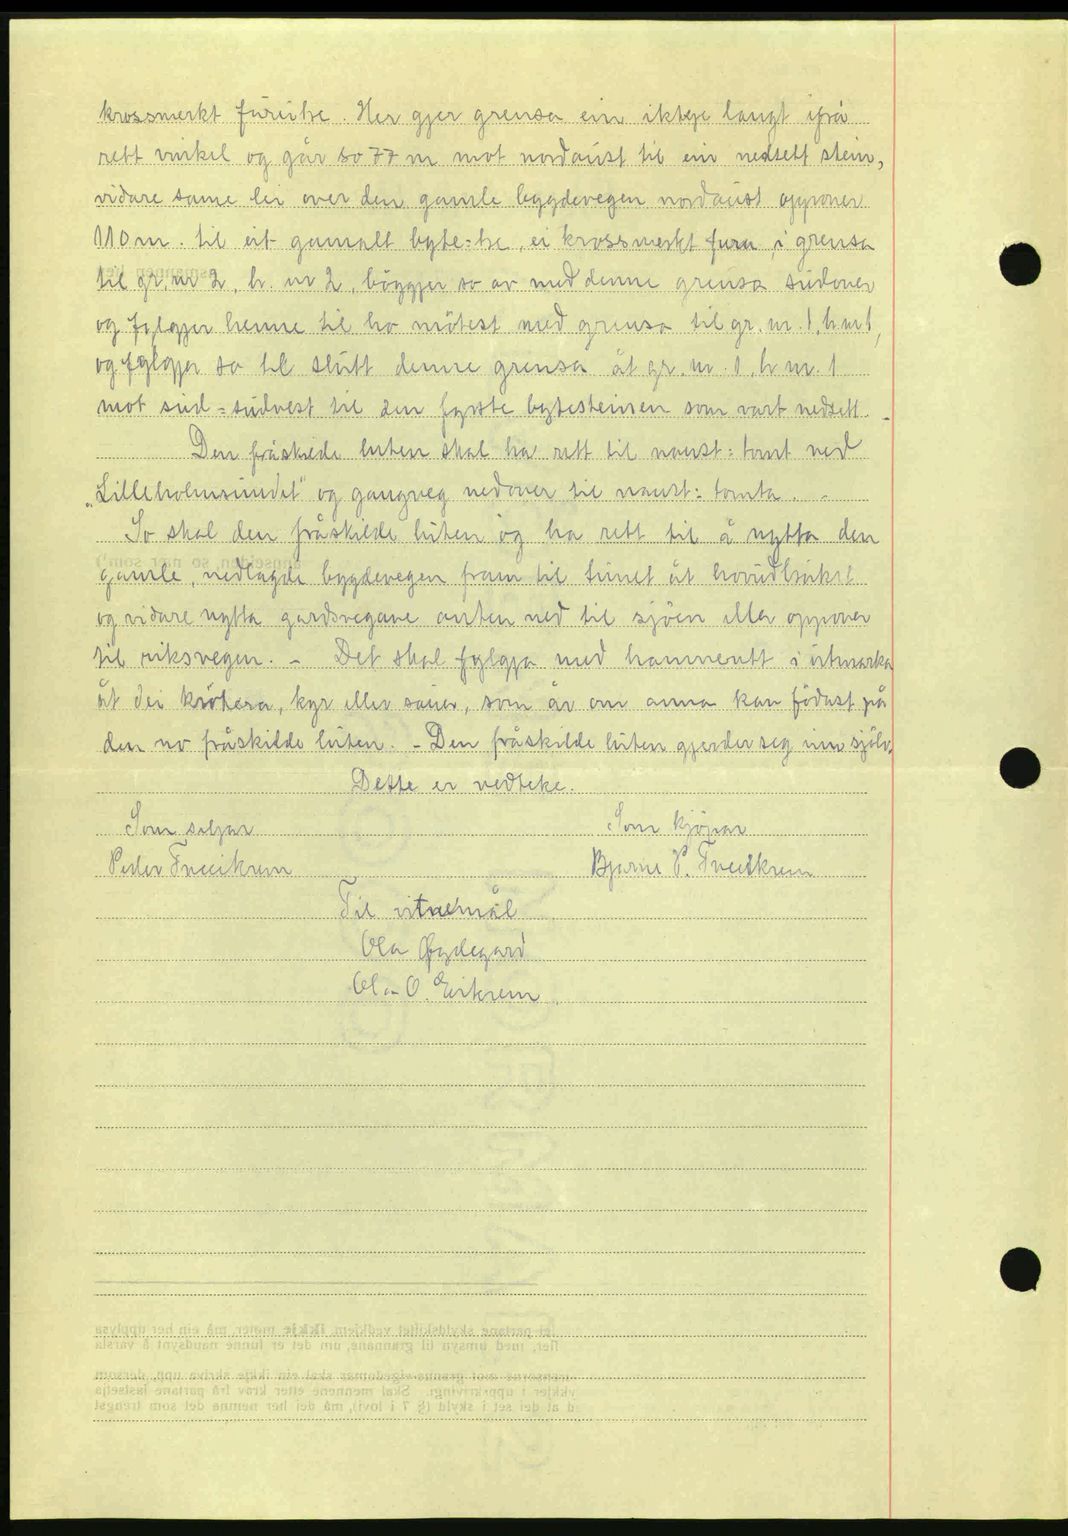 krossmerkt furutre. Her gjer grensa ein ikkje langt ifrå
rett vinkel og går so 77 m mot nordaust til ein nedsett stein,
vidare same lei over den gamle bygdevegen nordaust oppover
110 m. til eit gamalt byte=tre, ei krossmerkt furu, i grensa
til gr. nr 2, br. nr 2, böggjer so av med denne grensa sudover
og fylgjer henne til ho mötest med grensa til gr. nr. 1, br nr 1,
og fylgjer so til slutt denne grensa åt gr. nr. 1 br nr. 1
mot sud=sudvest til den fyrste bytesteinen som vart nedsett. -
Den fråskilde luten skal ha rett til naust=tomt ved
„Lilleholmsundet" og gangveg nedover til naust=tomta. -
So skal den fråskilde luten òg ha rett til å nytta den
gamle, nedlagde bygdevegen fram til tunet åt hovudbruket
og vidare nytta gardsvegane anten ned til sjöen eller oppover
til riksvegen. - Det skal fylgja med hamnerett i utmarka
åt dei krötera, kyr eller sauer, som år om anna kan födast på
den no fråskilde luten. - Den fråskilde luten gjerder seg inn sjölv.
Dette er vedteke.
Som seljar
Som kjöpar
Peder
Bjarne P.
Til vitnemål
Ola Øygdegard
Ola O. Eikrem